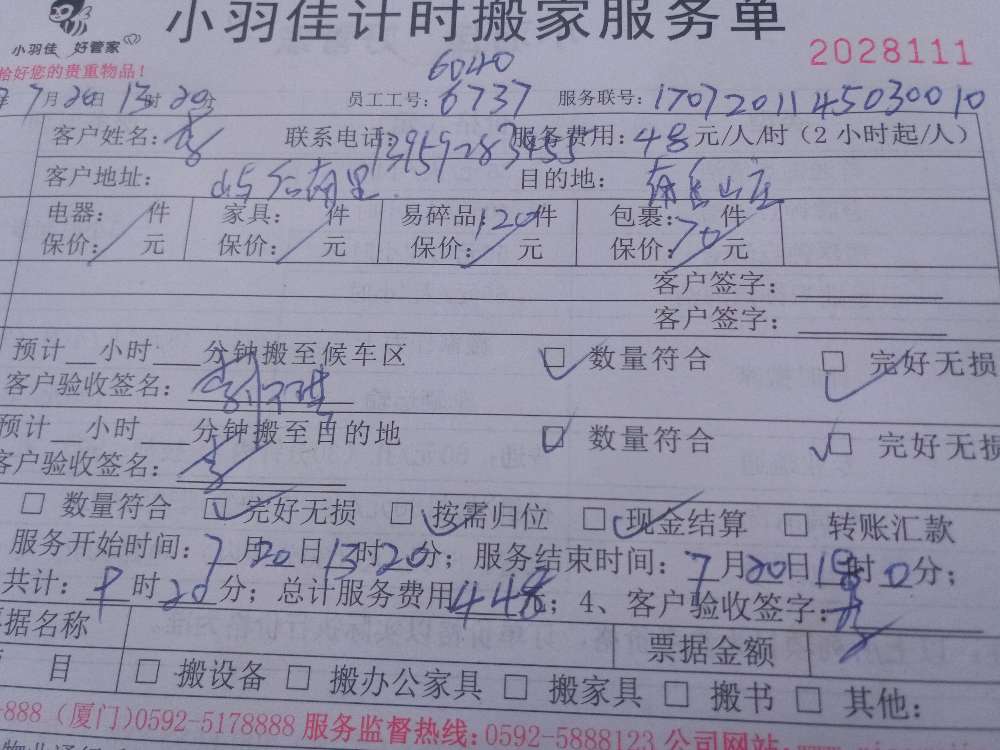 小羽佳计时搬家服务单
小羽佳 好管家
2028111
恰好您的贵重物品!
6040
7月20日13时20分 员工工号:6737 服务联号:1707201145030010
客户姓名: 联系电话:13959283455 服务费用:48元/人/时(2小时起/人)
客户地址: 后南里 目的地: 山庄
电器: 件 家具: 件 易碎品:120件 包裹:70件
保价: 元 保价: 元 保价: 元 保价: 元
客户签字:
客户签字:
预计__小时___分钟搬至候车区 ☑ 数量符合 ☑ 完好无损
客户验收签名:
预计__小时___分钟搬至目的地 ☑ 数量符合 ☑ 完好无损
客户验收签名:
□ 数量符合 ☑ 完好无损 □ 按需归位 □ 现金结算 □ 转账汇款
服务开始时间:7月20日13时20分;服务结束时间:7月20日18时0分;
共计: 时20分;总计服务费用448元;4、客户验收签字:
票据名称 票据金额
项 目 □ 搬设备 □ 搬办公家具 □ 搬家具 □ 搬书 □ 其他:
-888(厦门)0592-5178888 服务监督热线:0592-5888123 公司网站: